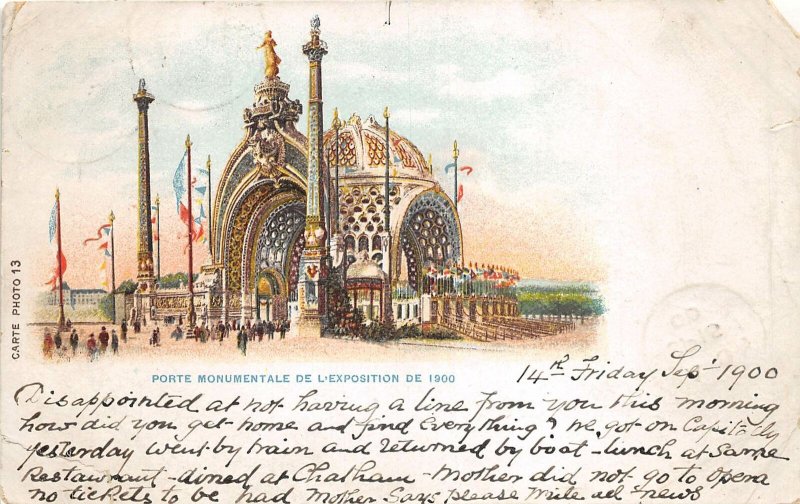 CARTE PHOTO 13
PORTE MONUMENTALE DE L'EXPOSITION DE 1900
14th Friday Sep' 1900
Disappointed at not having a line from you this morning
how did you get home and find Everything? We got on Capitally
yesterday went by train and returned by boat - lunch at same
Restaurant - dined at Chatham - Mother did not go to Opera
no tickets to be had Mother Says please write all news